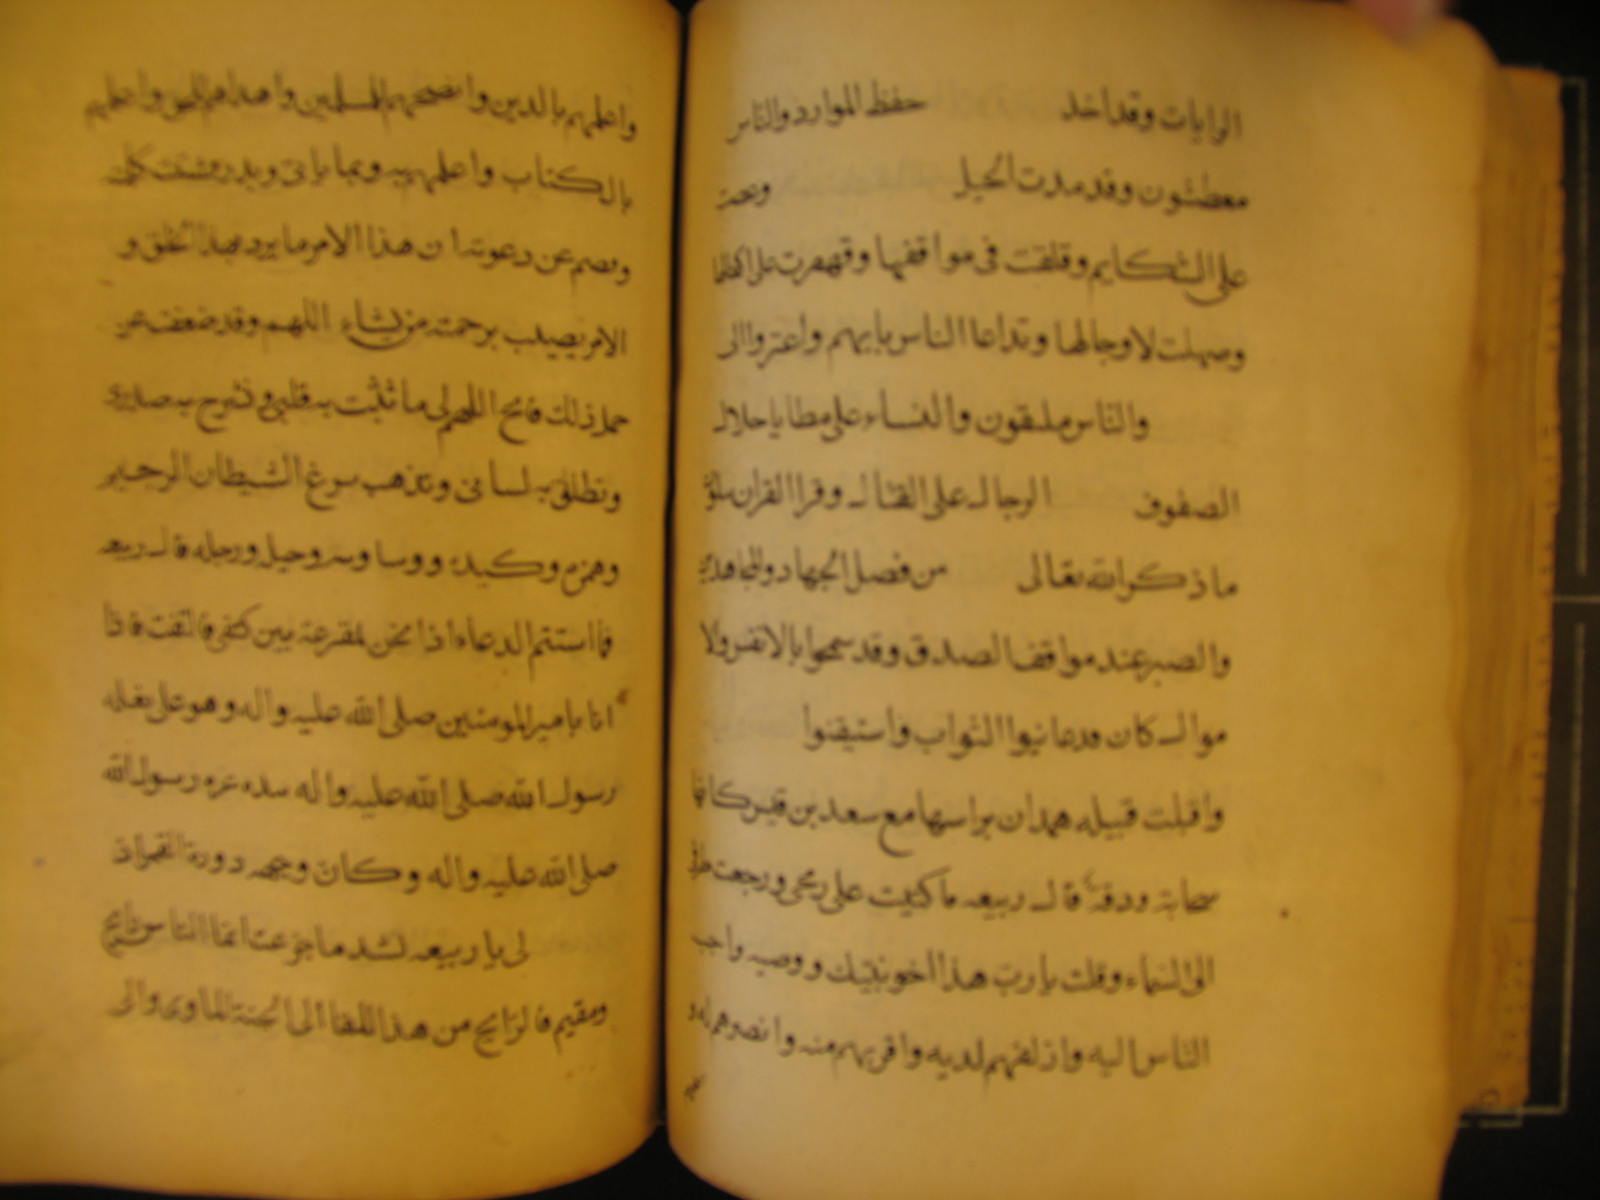 الرايات وقد اخذ حفظ الموارد والناس
معطئون وقد مدت الخيل
على الشكايم وقلقت في مواقفها وقهقرت على
وصهلت لاوجالها وتداعا الناس بابهم واعتزوا الى
والناس ملبقون والنساء على مطايا خلال
الصفوف الرجال على القتال وقرا القران
ما ذكر الله تعالى من فضل الجهاد والمجاهدين
والصبر عند مواقف الصدق وقد سمحوا بالانفس ولا
موال كان قد عاينوا الثواب واستيقنوا
واقبلت قبيله همدان براسها مع سعد بن قيس كانها
سحابة ودقة قال ربيعه فاكتيت على رمحي ورجعت طرفي
الى السماء وقلت يا رب هذا اخو نبيك ووصيه واحب
الناس اليه وازلفهم لديه واقربهم منه وانصرهم له و
واعلمهم بالدين وانصحهم للمسلمين واهداهم للحق واعلمهم
بالكتاب واعلمهم به وبما ياتى ويذر
ويصم عن دعوته ان هذا الامر ما يرد بهذا الخلق و
الامر يصيب برحمته من يشاء اللهم وقد ضعفت عن
حمل ذلك فافتح اللهم لي ما تثبت به قلبي وتشرح به صدري
وتطلق به لساني وتذهب به نزغ الشيطان الرجيم
وهمزه وكيده ووساوسه وخيله ورجله قال ربيعه
فما استتم الدعاء اذا نحن بمقرعة بين كتفي فالتفت فاذا
انا بامير المومنين صلى الله عليه واله وهو على بغله
رسول الله صلى الله عليه واله بيده عنزه رسول الله
صلى الله عليه واله وكان وجهه دورة القمر اذ
لي يا ربيعه لشد ما جزعت انما الناس رايح
ومقيم فالرايح من هذا اللقا الى الجنة الماوى والى